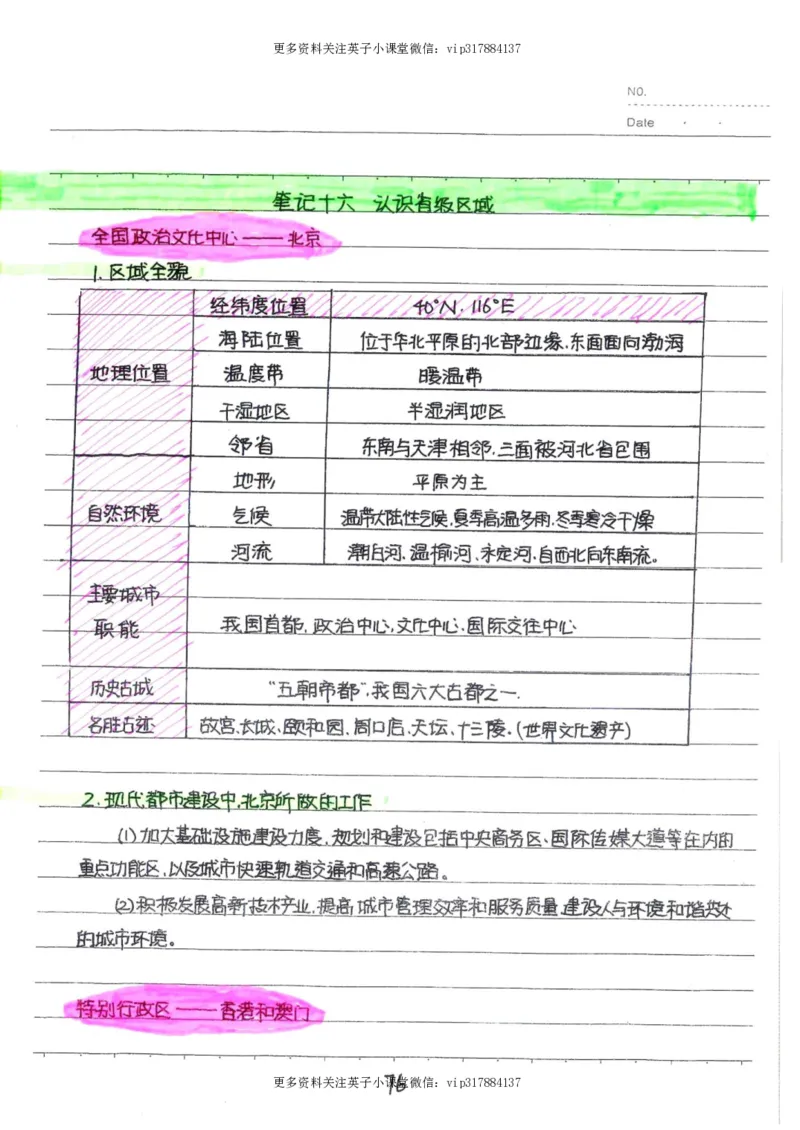 更多资料关注英子小课堂微信：vip317884137
NO.
Date
笔记十六 认识省级区域
全国政治文化中心——北京
1.区域全貌
地理位置
经纬度位置 40°N，116°E
海陆位置 位于华北平原的北部边缘、东面面向渤海
温度带 暖温带
干湿地区 半湿润地区
邻省 东南与天津相邻，三面被河北省包围
自然环境
地形 平原为主
气候 温带大陆性气候，夏季高温多雨，冬季寒冷干燥
河流 潮白河、温榆河、永定河，自西北向东南流。
主要城市
职能 我国首都，政治中心，文化中心，国际交往中心
历史古城 “五朝帝都”，我国六大古都之一.
名胜古迹 故宫、长城、颐和园、周口店、天坛、十三陵.(世界文化遗产)
2.现代都市建设中，北京所做的工作
(1)加大基础设施建设力度，规划和建设包括中央商务区、国际传媒大道等在内的
重点功能区，以及城市快速轨道交通和高速公路。
(2)积极发展高新技术产业，提高城市管理效率和服务质量，建设人与环境和谐共处
的城市环境。
特别行政区——香港和澳门
76
更多资料关注英子小课堂微信：vip317884137